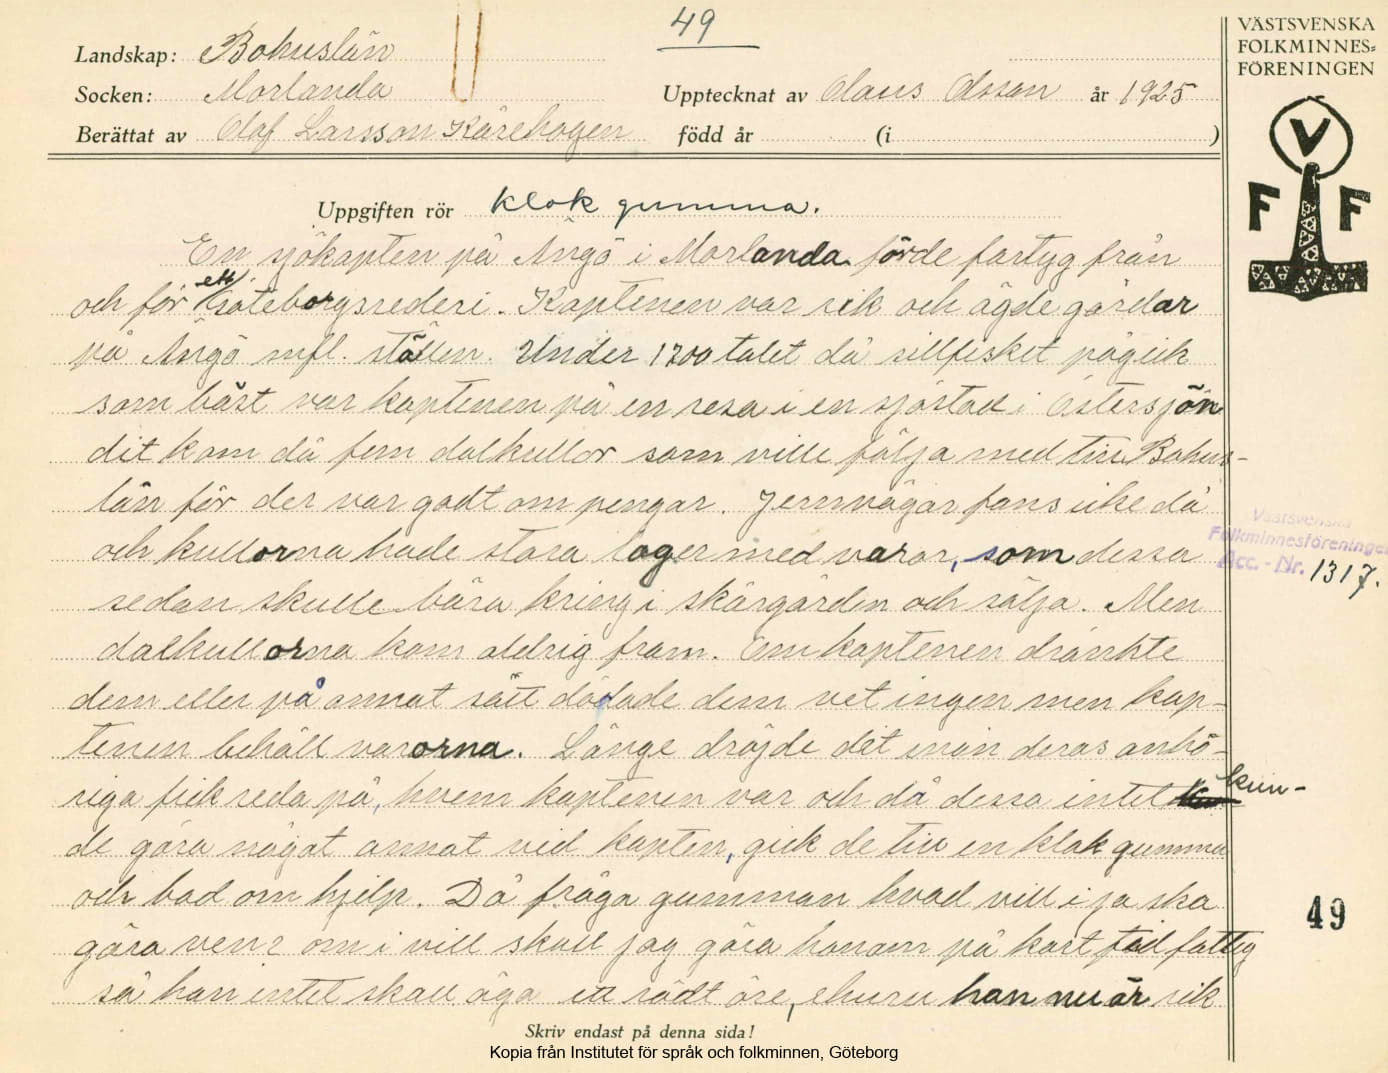 49
VÄSTSVENSKA
FOLKMINNES=
FÖRENINGEN
Landskap: Bohuslän
Socken: Morlanda
Upptecknat av Olaus Olsson år 1925
Berättat av Olof Larsson Kårehogen född år (i )
V
F F
Uppgiften rör klok gumma.
En sjökapten på Ängö i Morlanda förde fartyg från
och för ett Göteborgsrederi. Kaptenen var rik och ägde gårdar
på Ängö mfl. ställen. Under 1700 talet då sillfisket pågick
som bäst var kaptenen på en resa i en sjöstad i Östersjön
dit kom då fem dalkullor som ville följa med till Bohus-
län för der var godt om pengar. Jernvägar fans icke då
och kullorna hade stora lager med varor, som dessa
sedan skulle bära kring i skärgården och sälja. Men
dalkullorna kom aldrig fram. Om kaptenen dränkte
dem eller på annat sätt dödade dem vet ingen men kap-
tenen behöll varorna. Länge dröjde det innan deras anhö-
riga fick reda på, hvem kaptenen var och då dessa intet kun-
de göra något annat vid kapten, gick de till en klok gumma
och bad om hjelp. Då fråga gumman hvad vill i ja ska
göra ven? om i vill skall jag göra honom på kort tid fattig
så han intet skall äga ett rödt öre, ehuru han nu är rik
Västsvenska
Folkminnesföreningen
Acc. - Nr. 1317.
49
Skriv endast på denna sida!
Kopia från Institutet för språk och folkminnen, Göteborg